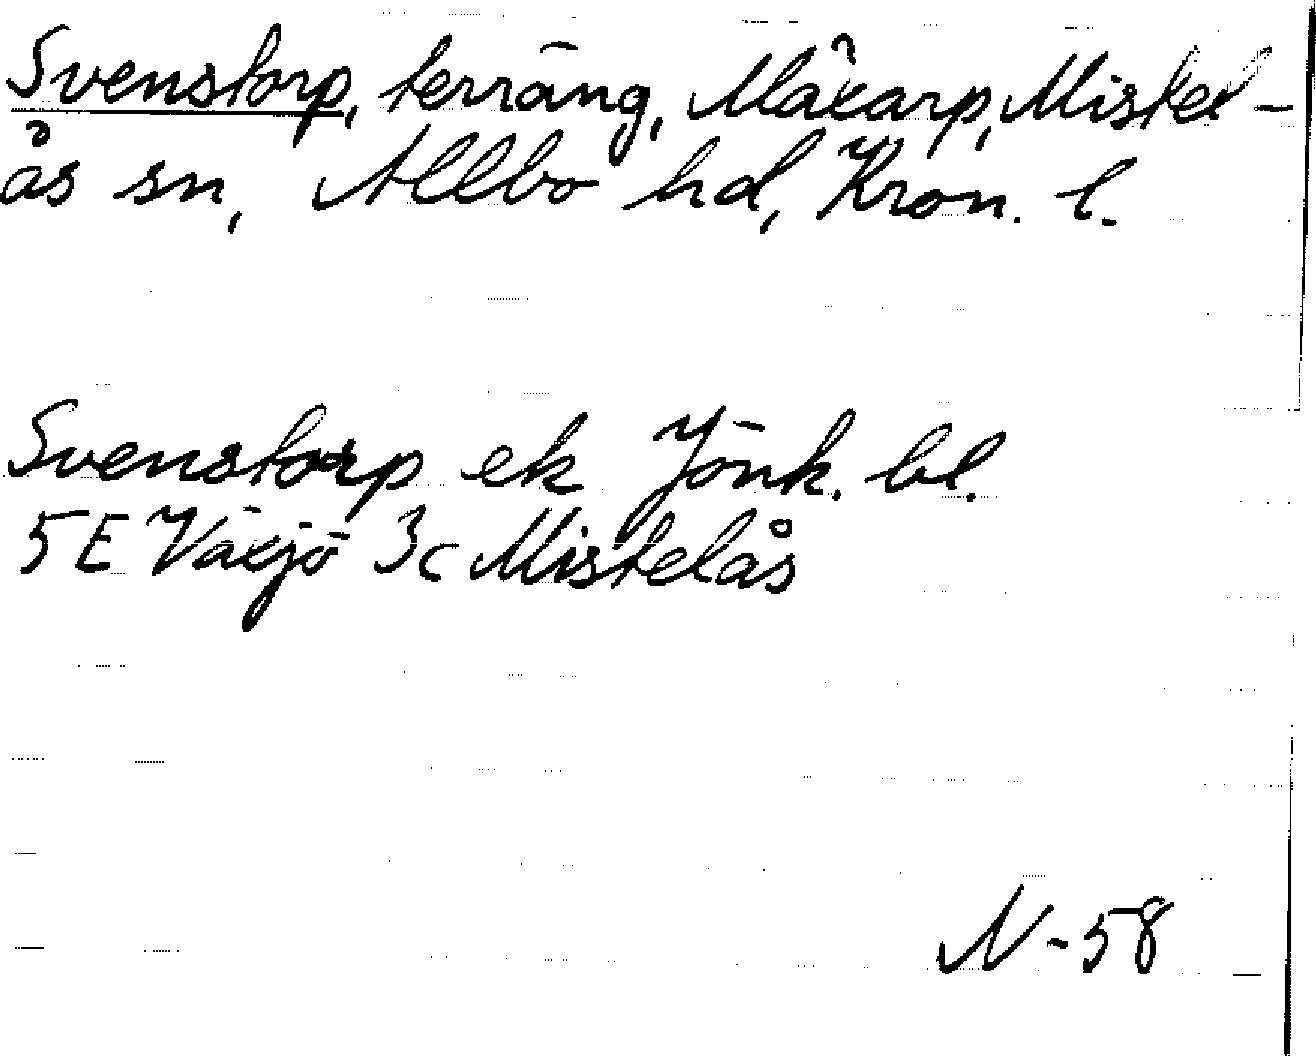 Svenstorp, terräng, Måkarp, Mistel-
ås sn, Allbo hd, Kron. l.
Svenstorp ek Jönk. bl.
5E Växjö 3c Mistelås
N-58